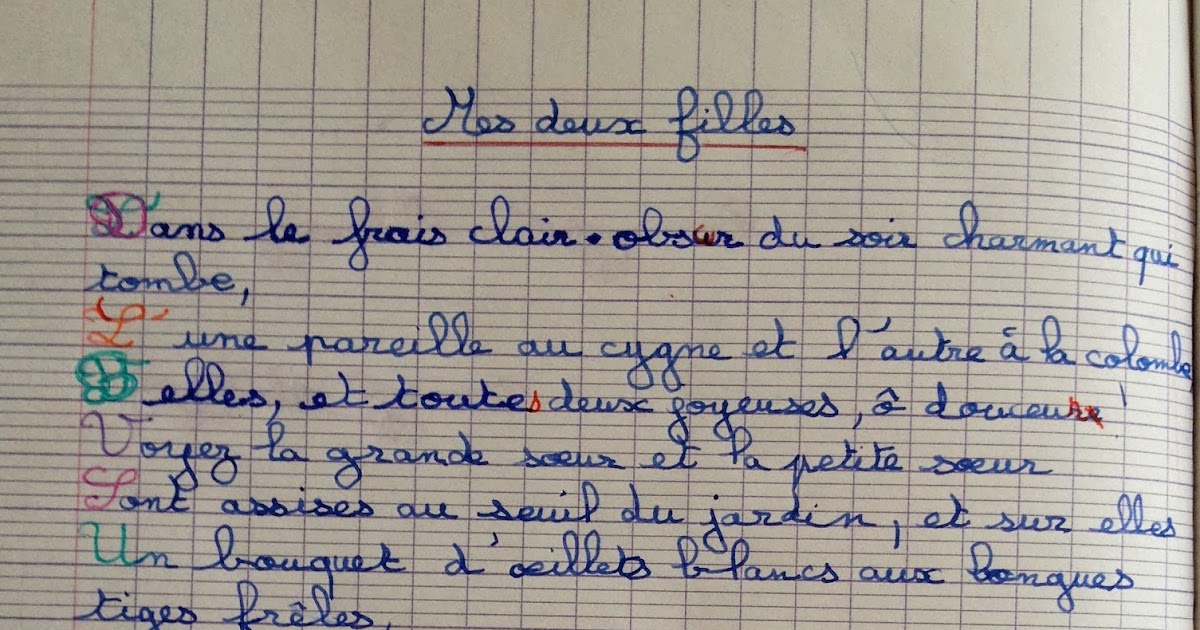 Mes deux filles
Dans le frais clair-obscur du soir charmant qui
tombe,
L'une pareille au cygne et l'autre à la colombe
Belles, et toutes deux joyeuses, ô douceur !
Voyez la grande sœur et la petite sœur
Sont assises au seuil du jardin, et sur elles
Un bouquet d'œillets blancs aux longues
tiges frêles,